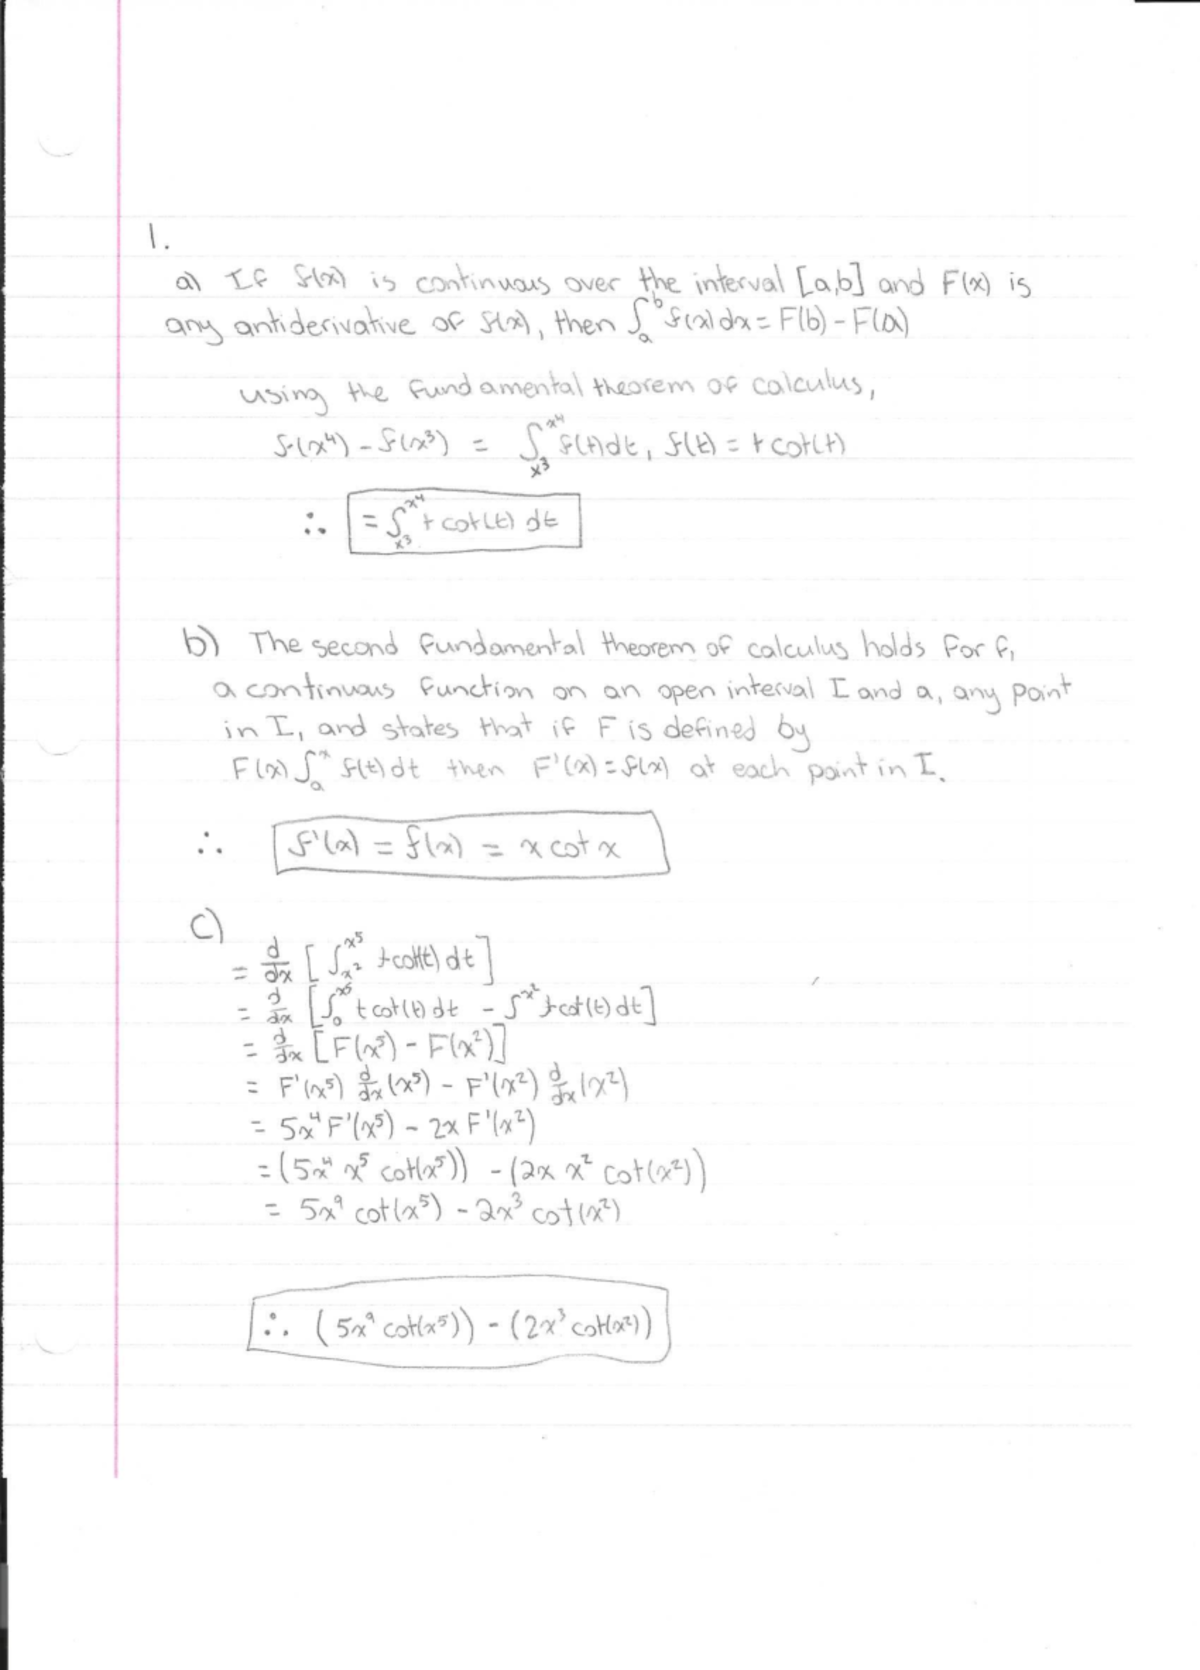 1.
a) If f(x) is continuous over the interval [a,b] and F(x) is
any antiderivative of f(x), then ∫_a^b f(x)dx = F(b) - F(a)
using the fundamental theorem of calculus,
f(x⁴) - f(x³) = ∫_{x³}^{x⁴} f(t)dt, f(t) = t cot(t)
∴ = ∫_{x³}^{x⁴} t cot(t) dt
b) The second fundamental theorem of calculus holds for f,
a continuous function on an open interval I and a, any point
in I, and states that if F is defined by
F(x) ∫_a^x f(t)dt then F'(x) = f(x) at each point in I.
∴ f'(x) = f(x) = x cot x
c)
= d/dx [∫_{x²}^{x⁵} t cot(t) dt]
= d/dx [∫_0^{x⁵} t cot(t) dt - ∫^{x²} t cot(t) dt]
= d/dx [F(x⁵) - F(x²)]
= F'(x⁵) d/dx (x⁵) - F'(x²) d/dx (x²)
= 5x⁴ F'(x⁵) - 2x F'(x²)
= (5x⁴ x⁵ cot(x⁵)) - (2x x² cot(x²))
= 5x⁹ cot(x⁵) - 2x³ cot(x²)
∴ (5x⁹ cot(x⁵)) - (2x³ cot(x²))